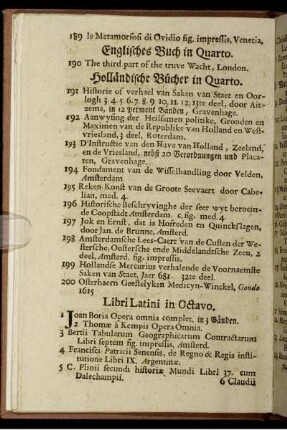 189 le Metamorfosi di Ovidio fig. impressis, Venetia,
Englisches Buch in Quarto.
190 The third part of the truve Wacht, London.
Holländische Bücher in Quarto.
191 Historie of verhael van Saken van Staet en Oor-
logh 3. 4. 5. 6. 7. 8. 9. 10. 11. 12. 13te deel, door Ait-
zema, in 12 perment Bänden, Gravenhage.
192 Aanwysing der Heilsamen politike, Gronden en
Maximen van de Republike van Holland en West-
vriesland, 3 deel, Roterdam.
193 D'Instructie van den Have van Holland, Zeeland,
en de Vriesland, nebst 20 Verordnungen und Placa-
ten, Gravenhage.
194 Fondament van de Wisselhandling door Velden,
Amsterdam
195 Reken-Konst van de Groote Seevaert door Cabe-
lian, med. 4.
196 Historische Beschryvinghe der seer wyt beroem-
de Coopstadt Amsterdam. c. fig. med. 4.
197 Jok en Ernst, dat is Hofreden en Quinckslagen,
door Jan. de Brunne, Amsterd.
198 Amsterdamsche Lees-Caert van de Custen der We-
stersche, Oostersche ende Middelandsche Zeen, 2
deel, Amsterd. fig. impressis.
199 Hollandse Mercurius verhalende de Voornaemste
Saken van Staet, Jaer 681. 32te deel.
200 Osterhaern Geestelyken Medicyn-Winckel, Gouda
1615
Libri Latini in Octavo,
1 Joan Boria Opera omnia complet. in 3 Bänden.
2 Thomæ à Kempis Opera Omnia.
3 Bertii Tabularum Geographicarum Contractarum
Libri septem fig. impressis, Amsterd.
4 Francisci Patricii Senensis, de Regno & Regis insti-
tutione Libri IX. Argentinæ.
5 C. Plinii secundi historiæ Mundi Libri 37. cum
Dalechampii.
6 Claudii